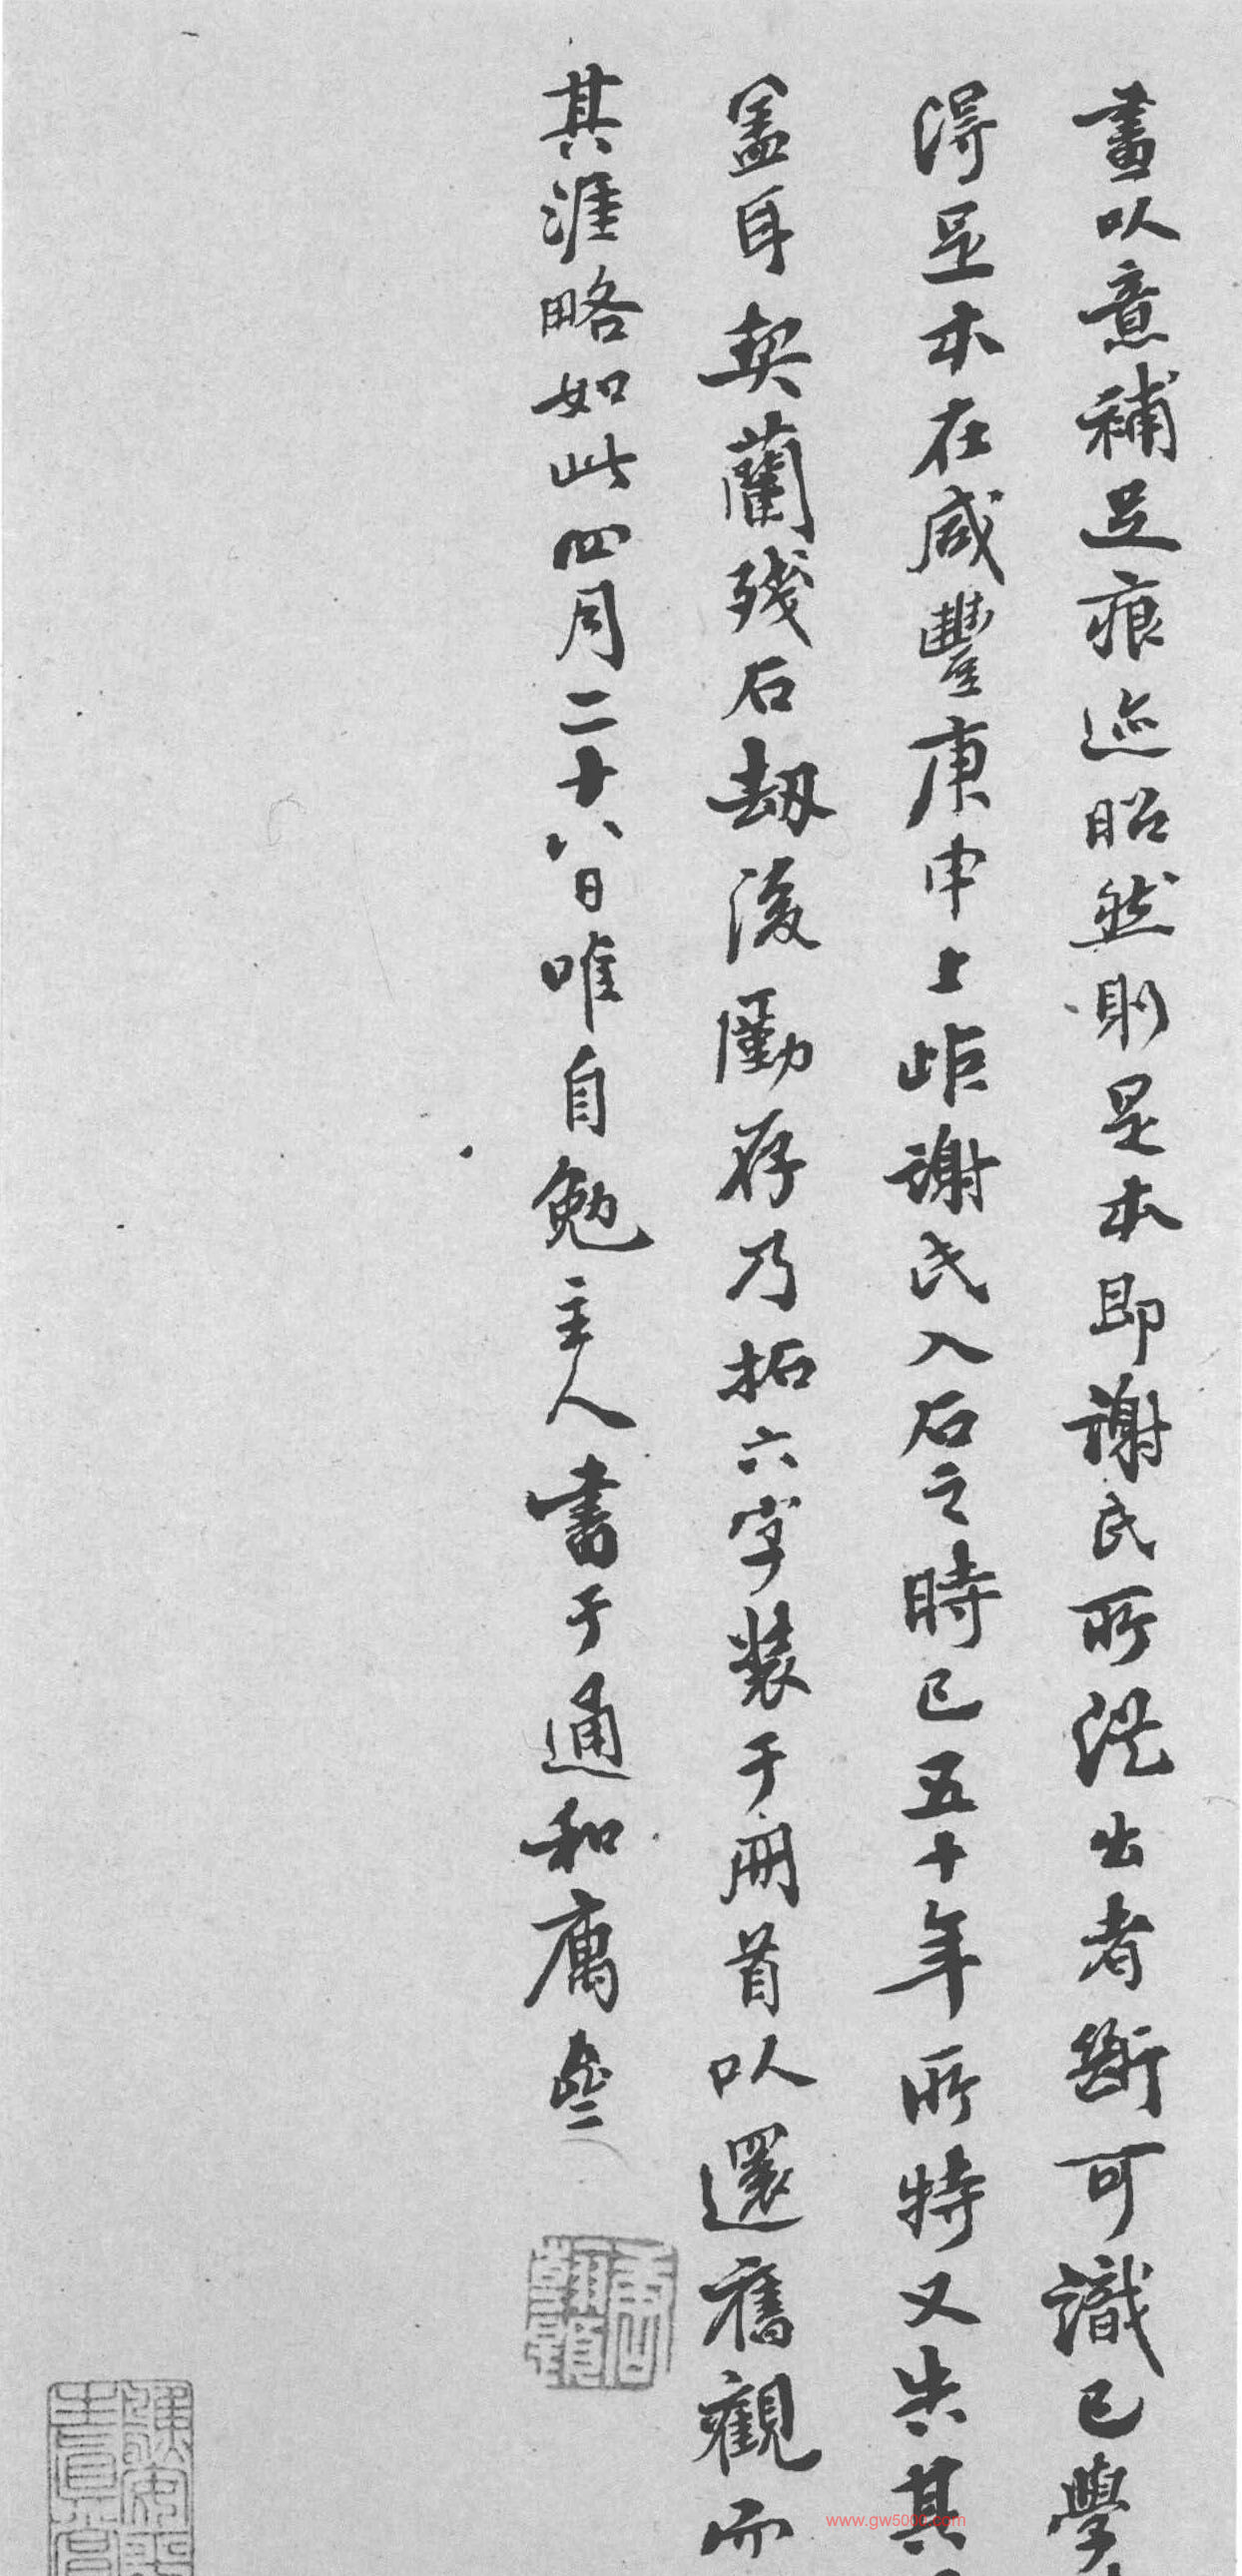 畫以意補足痕迹昭然則是本即謝氏所從出者斷可識已學
得是本在咸豐庚申上距謝氏入石之時已五十年所特又失其
盖耳契蘭殘石劫後廑存乃拓六字裝于冊首以還舊觀而
其涯略如此四月二十八日唯自勉主人書于通和
www.gw5000.com